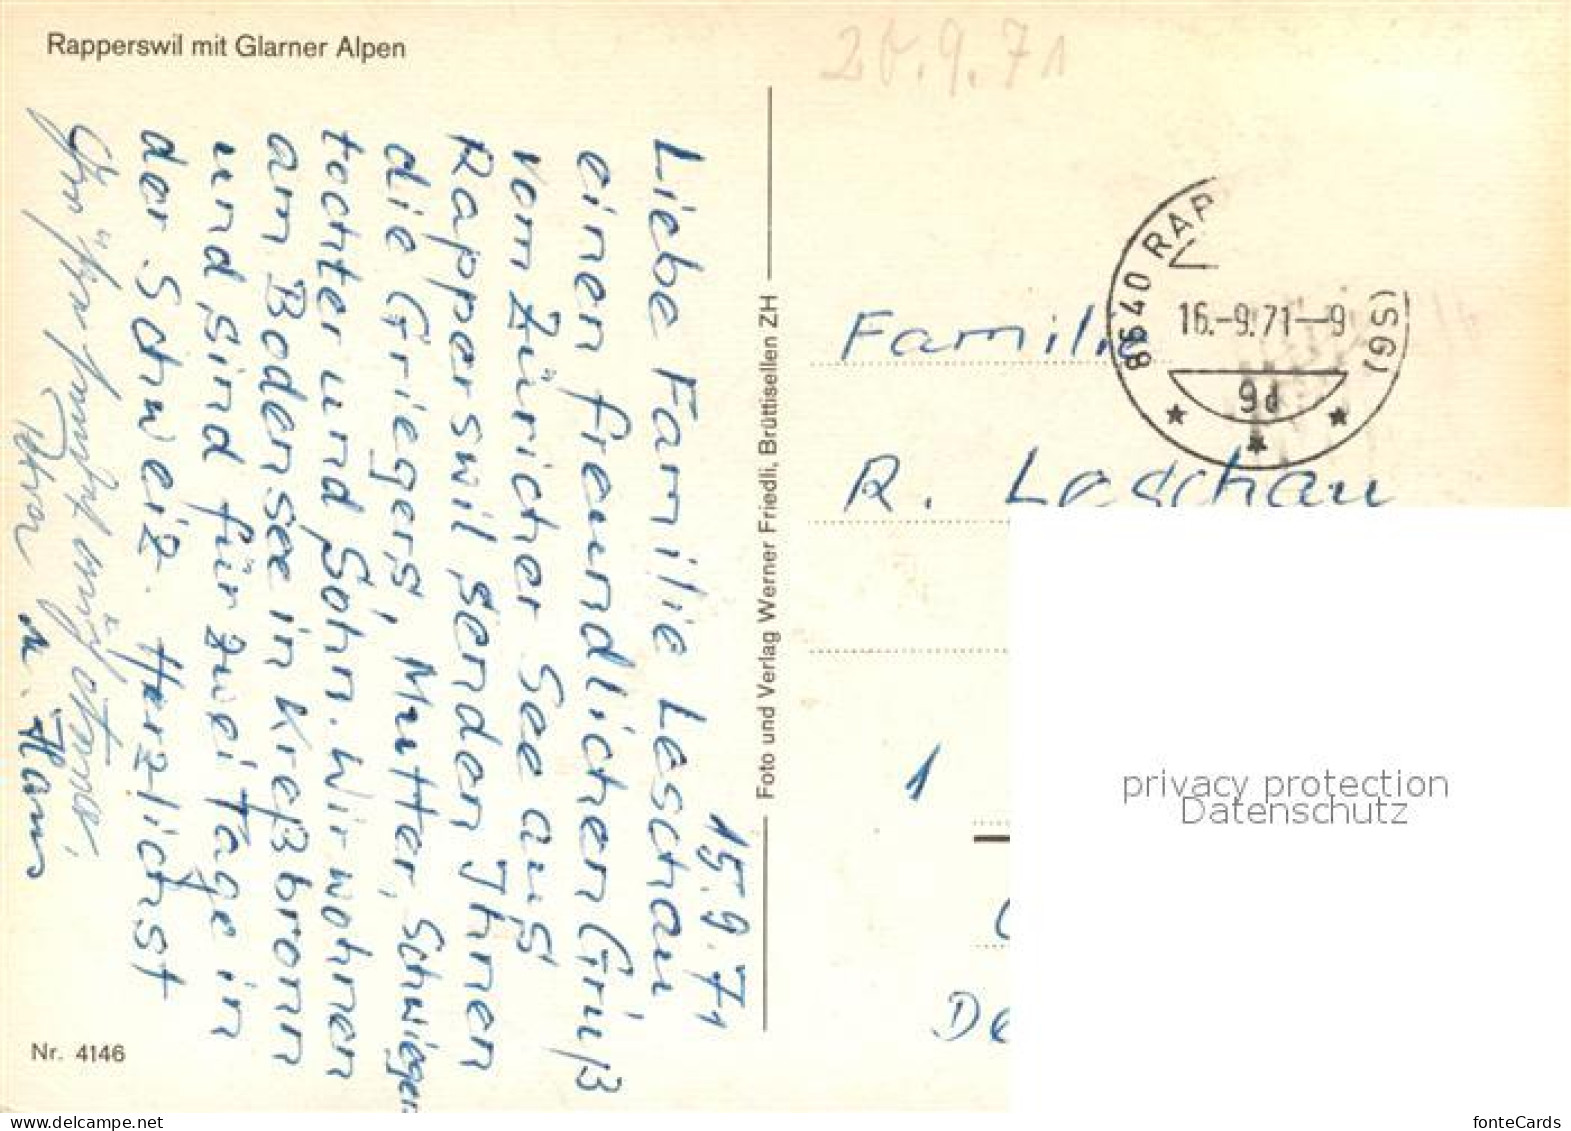 Rapperswil mit Glarner Alpen
20.9.71
15.9.71
Liebe Familie Leschau
einen freundlichen Gruß
vom Züricher See aus
Rapperswil senden Ihnen
die Griegers, Mutter, Schwieger-
tochter und Sohn. Wir wohnen
am Bodensee in Kreßbronn
und sind für zwei Tage in
der Schweiz. Herzlichst
Grüße
u. Hans
Nr. 4146
Foto und Verlag Werner Friedli, Brüttisellen ZH
8640 RAP
(SG)
16.-9.71-9
9d
Familie
R. Leschau
1
De
privacy protection
Datenschutz
fonteCards